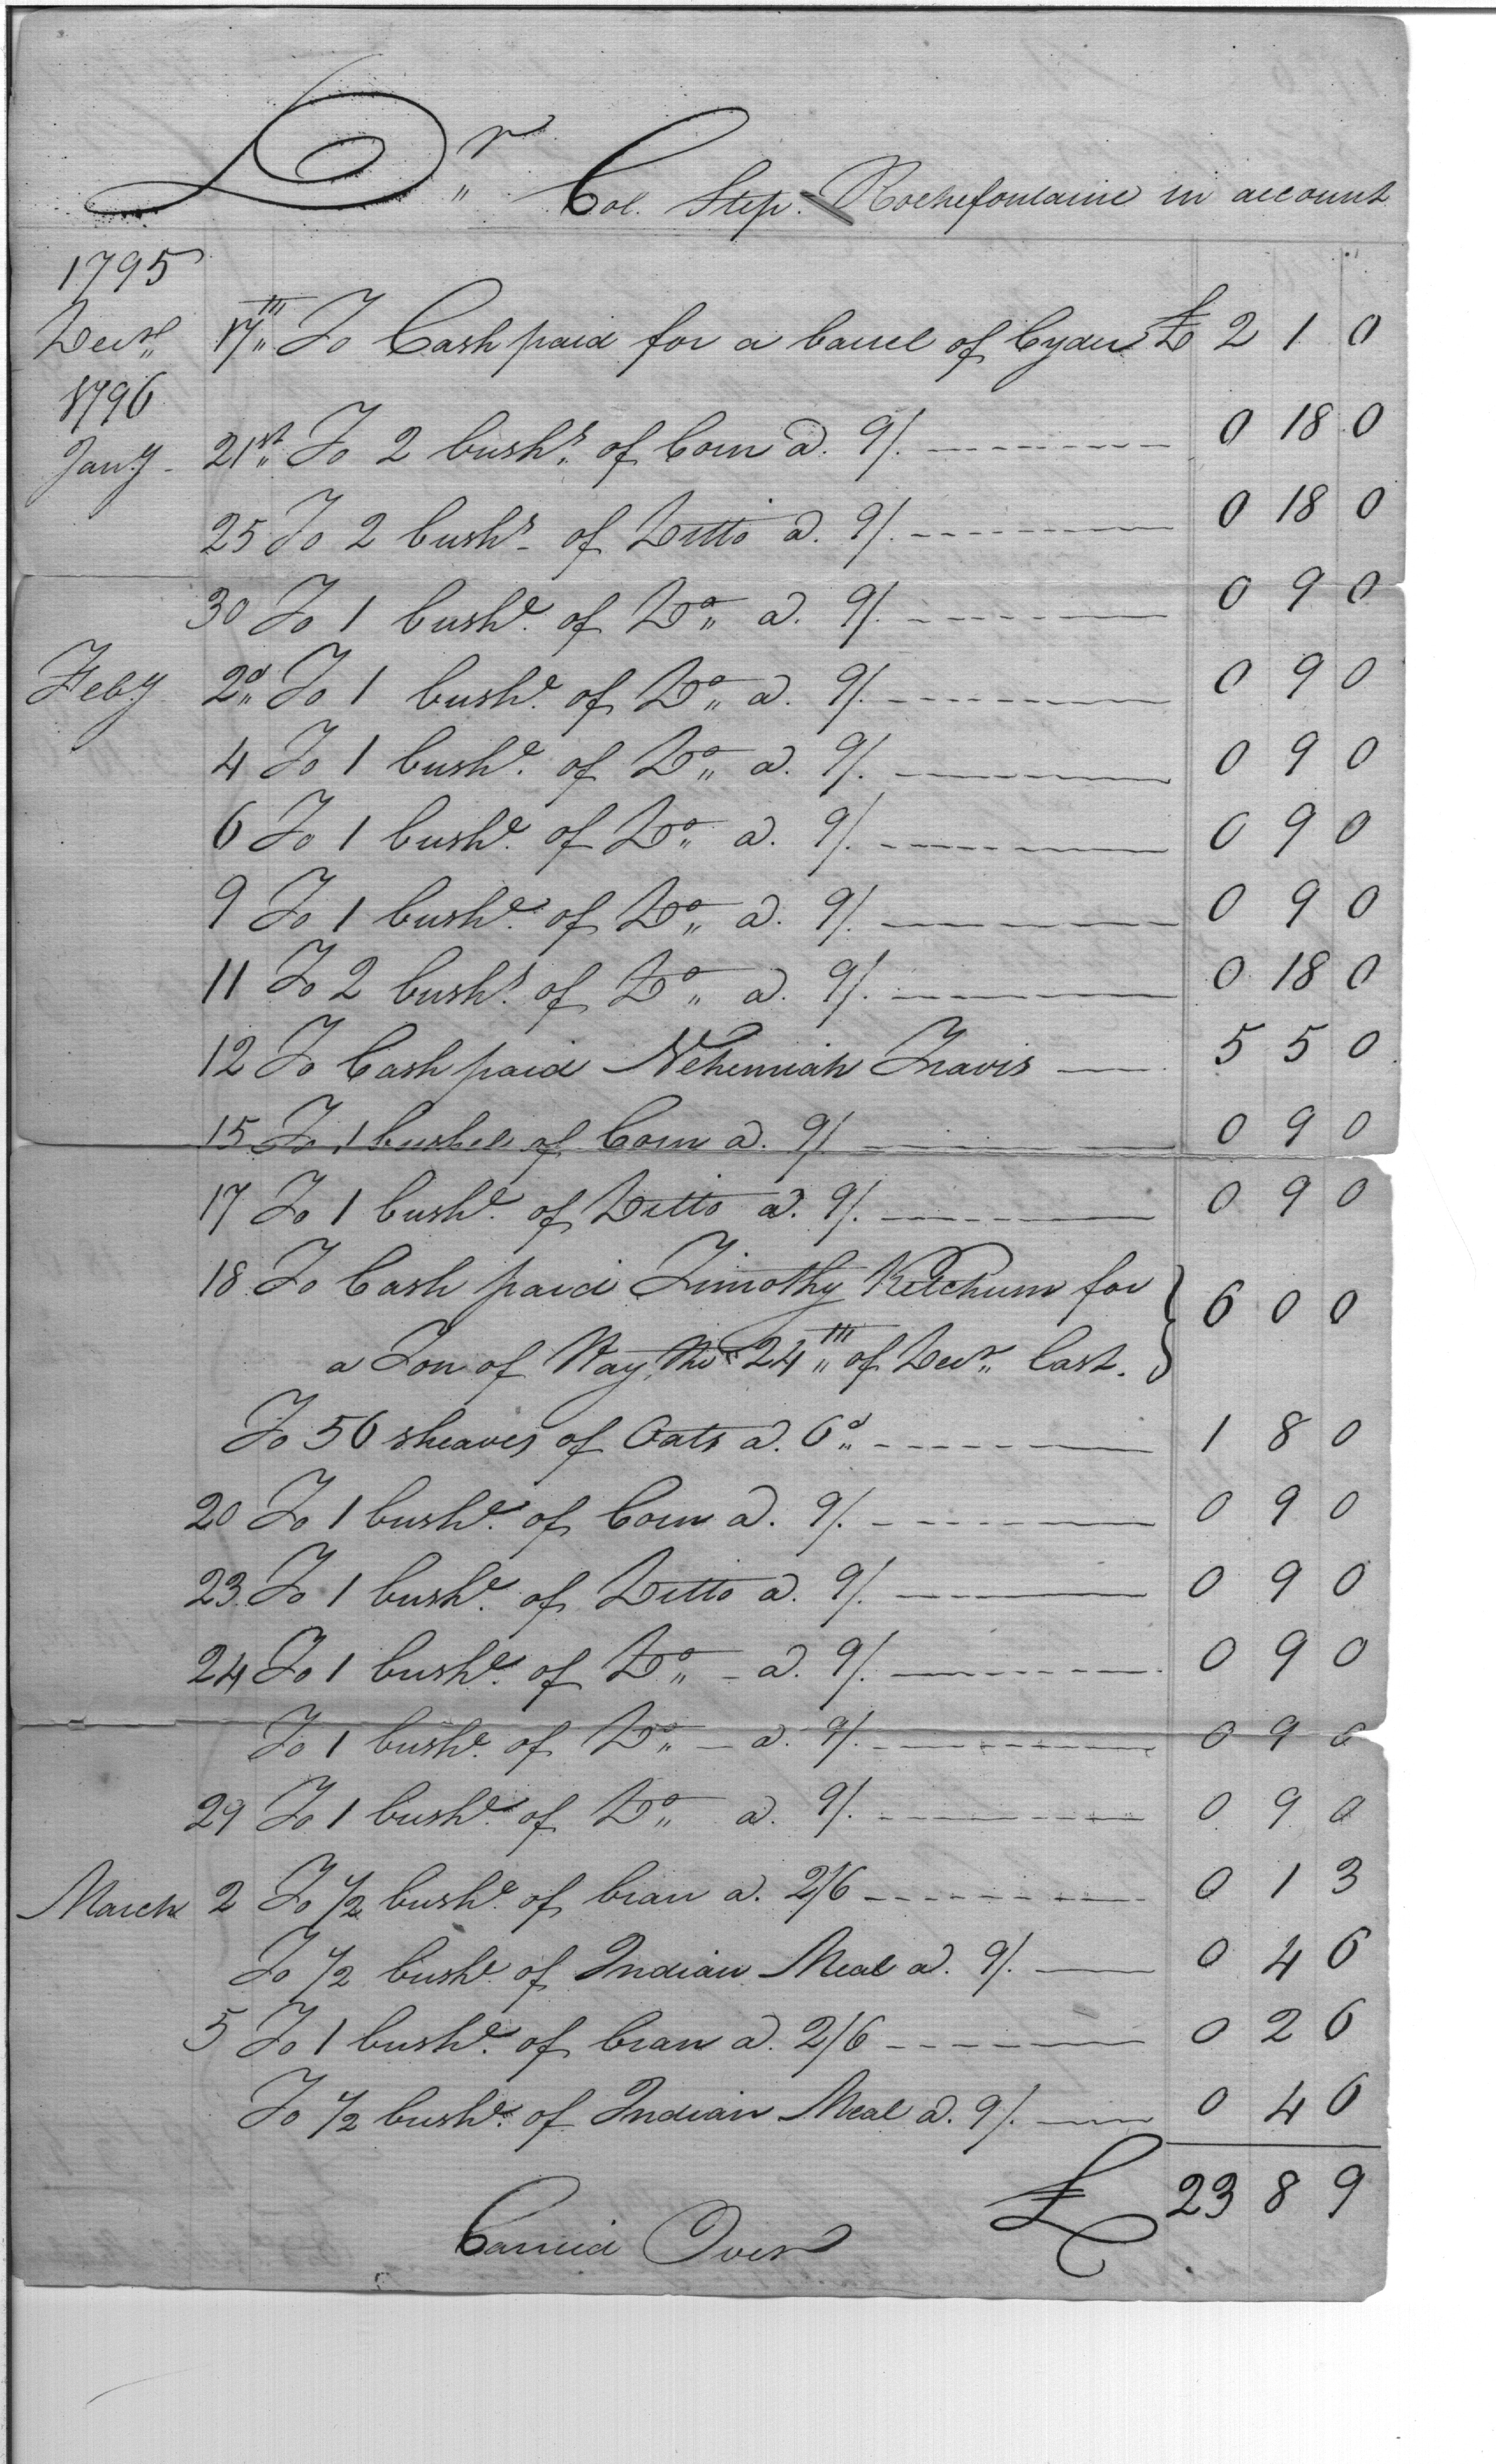 Dr Col. Step. Rochefontaine in account
1795
Decr 17th To Cash paid for a barrel of Cyder £ 2 1 0
1796
Jany 21st To 2 bushs of Corn a. 9/. 0 18 0
25 To 2 bushs of Ditto a. 9/. 0 18 0
30 To 1 bushe. of Do a. 9/. 0 9 0
Feby 2d To 1 bushe. of Do a. 9/. 0 9 0
4 To 1 bushe. of Do a. 9/. 0 9 0
6 To 1 bushe. of Do a. 9/. 0 9 0
9 To 1 bushe. of Do a. 9/. 0 9 0
11 To 2 bushs. of Do a. 9/. 0 18 0
12 To Cash paid Nehemiah Travis 5 5 0
15 To 1 bushel of Corn a. 9/. 0 9 0
17 To 1 bushe. of Ditto a. 9/. 0 9 0
18 To Cash paid Timothy Ketchum for } 6 0 0
a Ton of Hay, the 24th of Decr last.
To 56 sheaves of Oats a. 6d 1 8 0
20 To 1 bushe. of Corn a. 9/. 0 9 0
23 To 1 bushe. of Ditto a. 9/. 0 9 0
24 To 1 bushe. of Do a. 9/. 0 9 0
To 1 bushe. of Do a. 9/. 0 9 0
29 To 1 bushe. of Do a. 9/. 0 9 0
March 2 To 1/2 bushe. of bran a. 2/6 0 1 3
To 1/2 bushe. of Indian Meal a. 9/. 0 4 6
5 To 1 bushe. of bran a. 2/6 0 2 6
To 1/2 bushe. of Indian Meal a. 9/. 0 4 6
£ 23 8 9
Carried Over